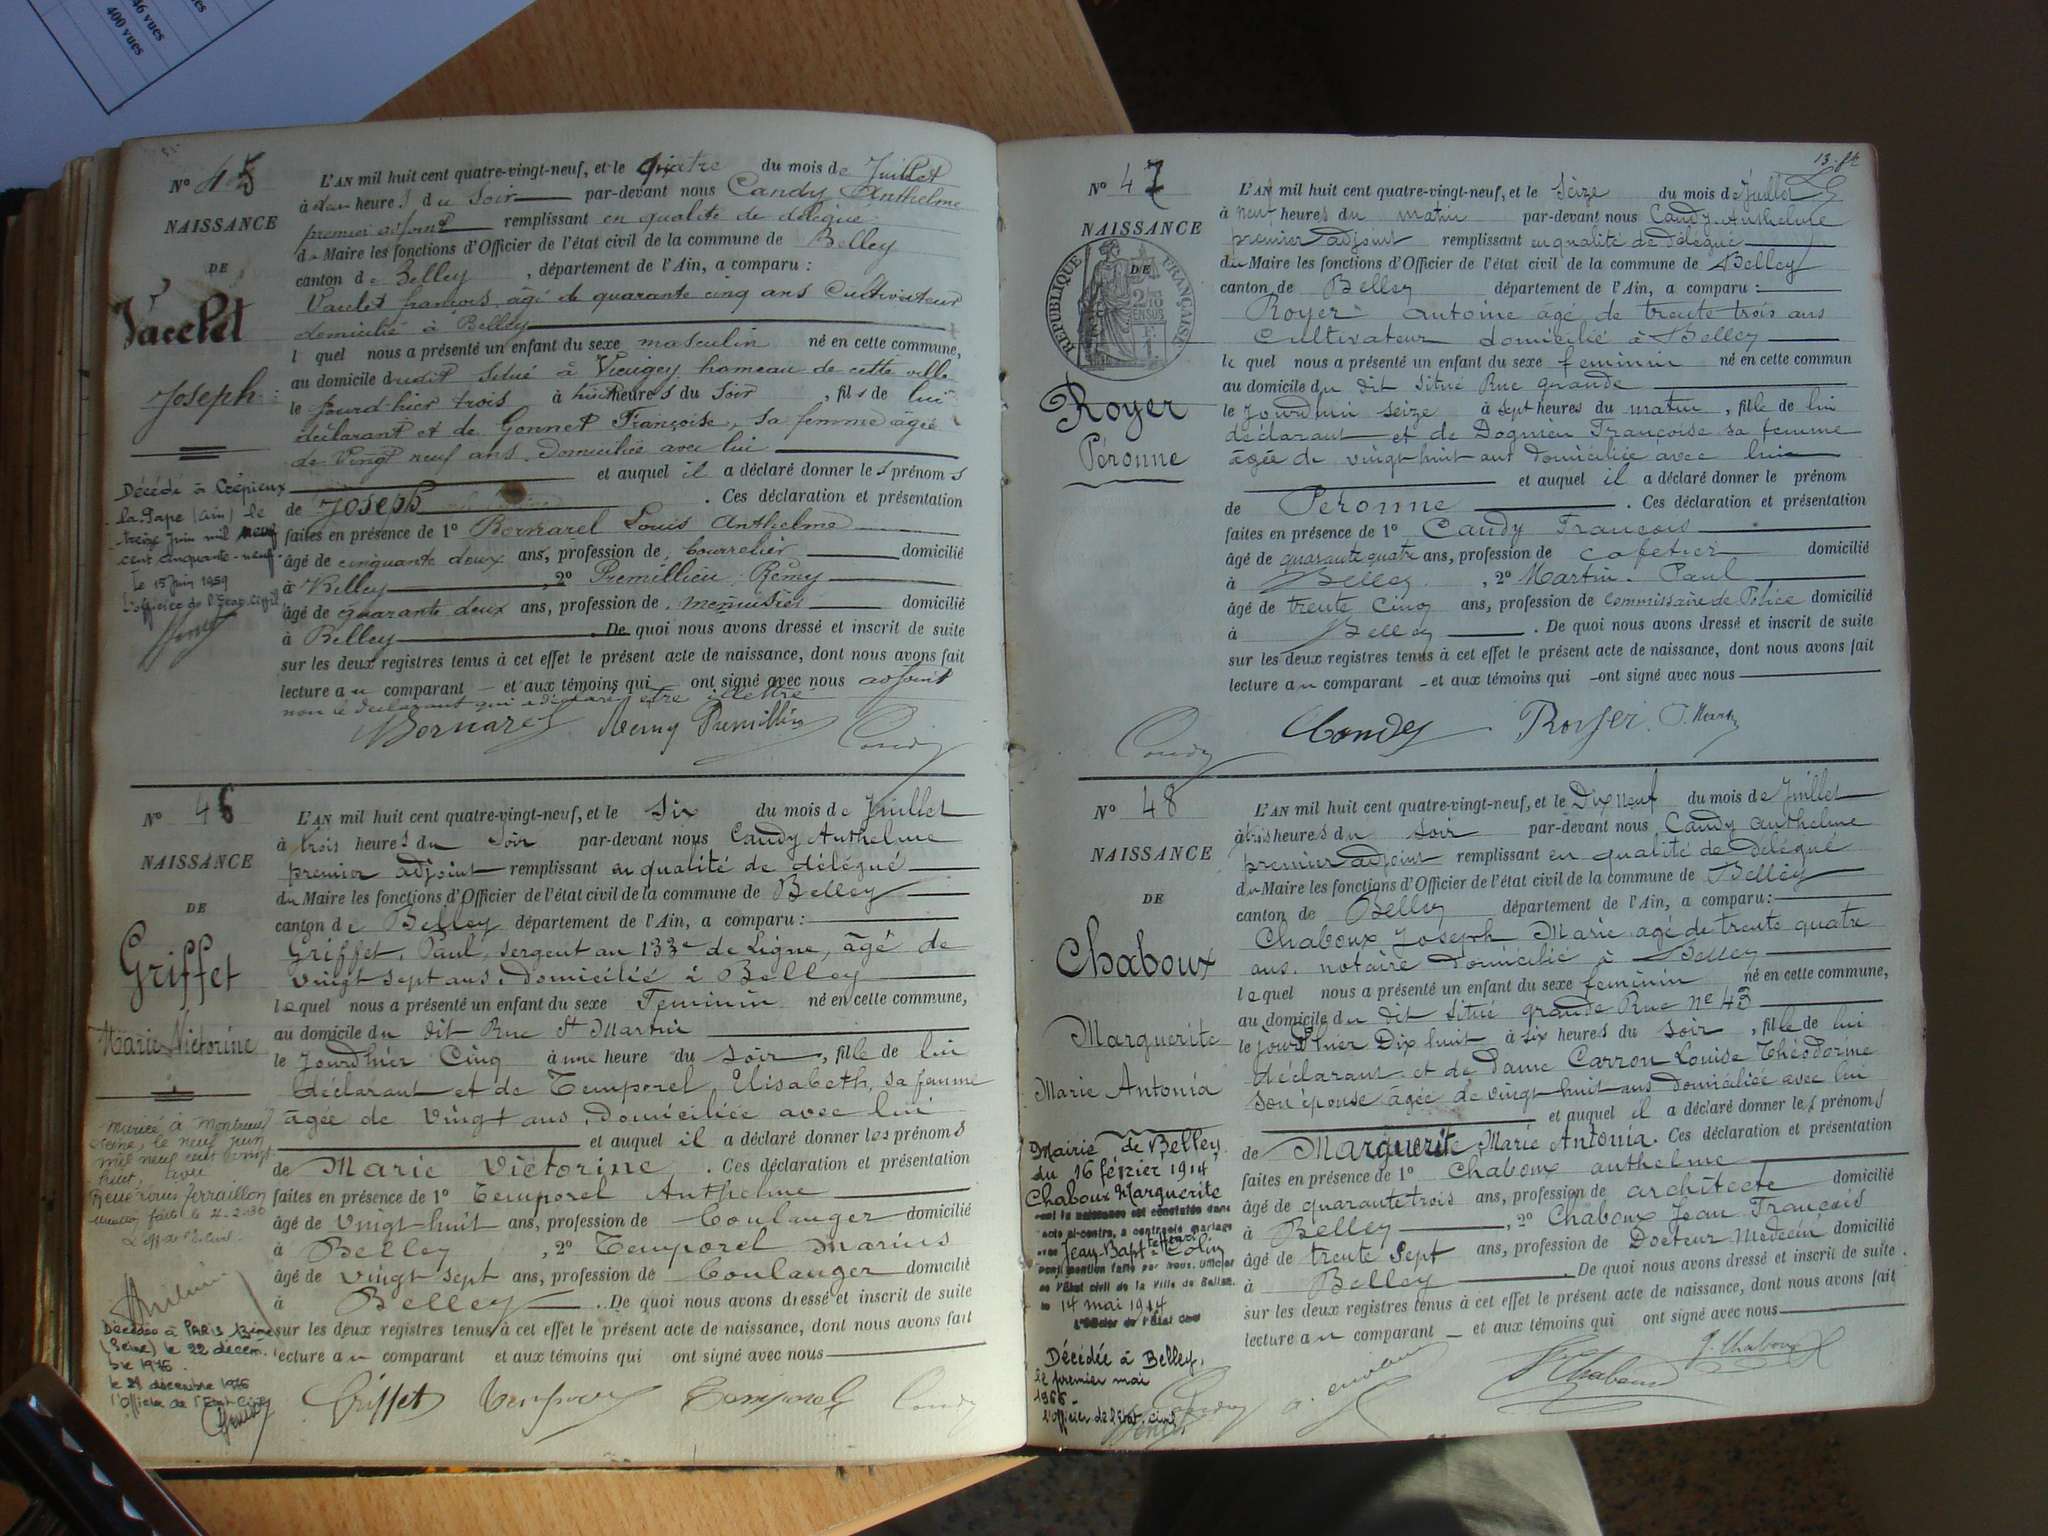 46 vues
400 vues
N° 45
NAISSANCE
DE
Vacclet
Joseph
Décédé à Crépieux
la-Pape (Ain) le
treize juin mil neuf
cent cinquante-neuf
le 15 juin 1959
L'officier de l'Etat Civil
L'AN mil huit cent quatre-vingt-neuf, et le quatre du mois de Juillet
à heures du soir par-devant nous Candy Anthelme
premier adjoint remplissant en qualité de délégué
du Maire les fonctions d'Officier de l'état civil de la commune de Belley
canton de Belley, département de l'Ain, a comparu :
Vacclet françois, âgé de quarante cinq ans Cultivateur
domicilié à Belley
lequel nous a présenté un enfant du sexe masculin né en cette commune,
au domicile dudit situé à Vieugey hameau de cette ville
le jourd'hier trois à huit heures du soir, fils de lui
déclarant et de Gonnet Françoise, sa femme âgée
de vingt neuf ans, Domiciliée avec lui
et auquel il a déclaré donner les prénoms
de Joseph. Ces déclaration et présentation
faites en présence de 1° Bornarel Louis Anthelme
âgé de cinquante deux ans, profession de bourrelier domicilié
à Belley, 2° Premillieu Rémy
âgé de quarante deux ans, profession de menuisier domicilié
à Belley. De quoi nous avons dressé et inscrit de suite
sur les deux registres tenus à cet effet le présent acte de naissance, dont nous avons fait
lecture au comparant et aux témoins qui ont signé avec nous adjoint
non le déclarant qui a déclaré être illettré
Bornarel Remy Premillieu Candy
N° 46
NAISSANCE
DE
Griffet
Marie Victorine
Mariée à Montreuil
Seine, le neuf juin
mil neuf cent vingt
huit, avec
René Louis Ferraillon
mention faite le 4-2-30
L'off. de l'E. Civil.
Décédée à PARIS 13ème
(Seine) le 22 décem.
bre 1976.
le 29 décembre 1976
l'Officier de l'Etat Civil
L'AN mil huit cent quatre-vingt-neuf, et le six du mois de Juillet
à trois heures du soir par-devant nous Candy Anthelme
premier adjoint remplissant en qualité de délégué
du Maire les fonctions d'Officier de l'état civil de la commune de Belley
canton de Belley département de l'Ain, a comparu :
Griffet, Paul, sergent au 133e de Ligne, âgé de
vingt sept ans, domicilié à Belley
lequel nous a présenté un enfant du sexe Feminin né en cette commune,
au domicile du dit Rue St Martin
le Jourd'hier Cinq à une heure du soir, fille de lui
déclarant et de Temporel, Elisabeth, sa femme
âgée de vingt ans, Domiciliée avec lui
et auquel il a déclaré donner les prénoms
de Marie Victorine. Ces déclaration et présentation
faites en présence de 1° Temporel Anthelme
âgé de vingt-huit ans, profession de boulanger domicilié
à Belley, 2° Temporel Marius
âgé de vingt sept ans, profession de boulanger domicilié
à Belley. De quoi nous avons dressé et inscrit de suite
sur les deux registres tenus à cet effet le présent acte de naissance, dont nous avons fait
lecture au comparant et aux témoins qui ont signé avec nous
Griffet Temporel Temporel Candy
N° 47
NAISSANCE
DE
RÉPUBLIQUE FRANÇAISE
Royer
Péronne
L'AN mil huit cent quatre-vingt-neuf, et le Seize du mois de Juillet
à neuf heures du matin par-devant nous Candy Anthelme
premier adjoint remplissant en qualité de délégué
du Maire les fonctions d'Officier de l'état civil de la commune de Belley
canton de Belley département de l'Ain, a comparu :
Royer Antoine âgé de trente trois ans
Cultivateur domicilié à Belley
lequel nous a présenté un enfant du sexe feminin né en cette commun
au domicile du dit situé Rue grande
le Jourd'hui seize à sept heures du matin, fille de lui
déclarant et de Dognien Françoise sa femme
âgée de vingt huit ans domiciliée avec lui
et auquel il a déclaré donner le prénom
de Peronne. Ces déclaration et présentation
faites en présence de 1° Candy François
âgé de quarante quatre ans, profession de cafetier domicilié
à Belley, 2° Martin Paul
âgé de trente cinq ans, profession de Commissaire de Police domicilié
à Belley. De quoi nous avons dressé et inscrit de suite
sur les deux registres tenus à cet effet le présent acte de naissance, dont nous avons fait
lecture au comparant et aux témoins qui ont signé avec nous
Candy Candy Royer P. Martin
N° 48
NAISSANCE
DE
Chaboux
Marguerite
Marie Antonia
Mairie de Belley
du 16 février 1914
Chaboux Marguerite
dont la naissance est constatée dans
l'acte ci-contre, a contracté mariage
avec Jean-Bapte Colin
dont mention faite par nous, Officier
de l'Etat civil de la Ville de Belley.
le 14 mai 1914
L'Officier de l'Etat Civil
Décédée à Belley,
le premier mai
1966
l'Officier de l'état civil
L'AN mil huit cent quatre-vingt-neuf, et le Dix neuf du mois de Juillet
à trois heures du soir par-devant nous Candy Anthelme
premier adjoint remplissant en qualité de délégué
du Maire les fonctions d'Officier de l'état civil de la commune de Belley
canton de Belley département de l'Ain, a comparu :
Chaboux Joseph Marie âgé de trente quatre
ans, notaire domicilié à Belley
lequel nous a présenté un enfant du sexe feminin né en cette commune,
au domicile du dit situé grande Rue N° 43
le jourd'hier Dix huit à six heures du soir, fille de lui
déclarant et de Dame Carron Louise Théodorine
son épouse âgée de vingt huit ans domiciliée avec lui
et auquel il a déclaré donner les prénoms
de Marguerite Marie Antonia. Ces déclaration et présentation
faites en présence de 1° Chaboux Anthelme
âgé de quarante trois ans, profession de architecte domicilié
à Belley, 2° Chaboux Jean François
âgé de trente sept ans, profession de Docteur Médecin domicilié
à Belley. De quoi nous avons dressé et inscrit de suite
sur les deux registres tenus à cet effet le présent acte de naissance, dont nous avons fait
lecture au comparant et aux témoins qui ont signé avec nous
Candy Chaboux J. Chaboux